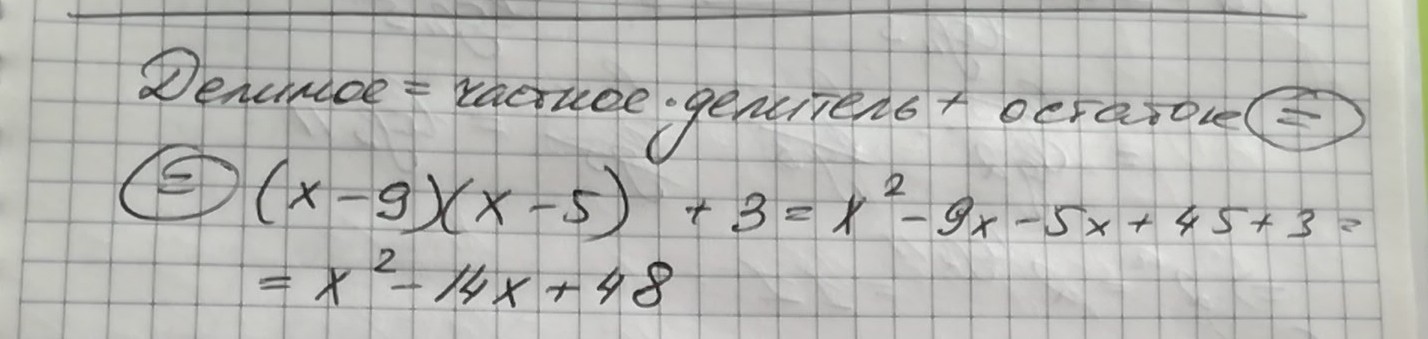 Делимое = частное · делитель + остаток =
= (x - 9)(x - 5) + 3 = x² - 9x - 5x + 45 + 3 =
= x² - 14x + 48